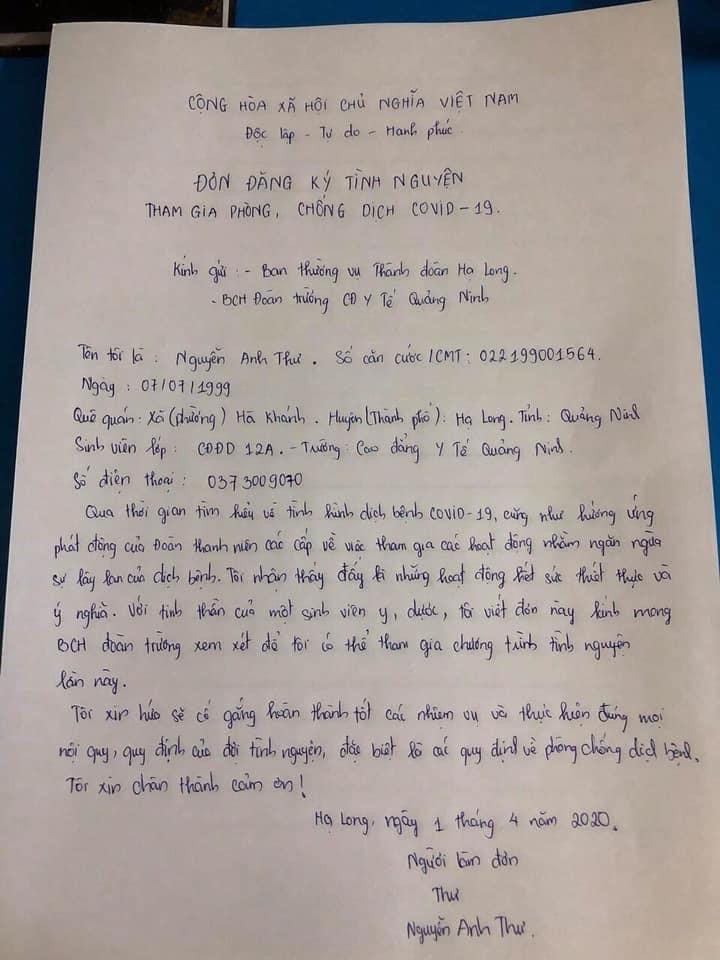 CỘNG HÒA XÃ HỘI CHỦ NGHĨA VIỆT NAM
Độc lập - Tự do - Hạnh phúc.
ĐƠN ĐĂNG KÝ TÌNH NGUYỆN
THAM GIA PHÒNG, CHỐNG DỊCH COVID-19.
Kính gửi : - Ban thường vụ Thành đoàn Hạ Long.
- BCH Đoàn trường CĐ Y Tế Quảng Ninh
Tên tôi là : Nguyễn Anh Thư . Số căn cước /CMT : 022199001564.
Ngày : 07/07/1999
Quê quán: Xã (phường) Hà Khánh . Huyện (Thành phố) : Hạ Long. Tỉnh : Quảng Ninh
Sinh viên lớp : CĐĐD 12A . - Trường : Cao đẳng Y Tế Quảng Ninh.
Số điện thoại : 0373009070
Qua thời gian tìm hiểu về tình hình dịch bệnh COVID-19, cũng như hưởng ứng
phát động của Đoàn thanh niên các cấp về việc tham gia các hoạt động nhằm ngăn ngừa
sự lây lan của dịch bệnh. Tôi nhận thấy đấy là những hoạt động hết sức thiết thực và
ý nghĩa. Với tinh thần của một sinh viên y, dược, tôi viết đơn này kính mong
BCH đoàn trường xem xét để tôi có thể tham gia chương trình tình nguyện
lần này.
Tôi xin hứa sẽ cố gắng hoàn thành tốt các nhiệm vụ và thực hiện đúng mọi
nội quy, quy định của đội tình nguyện, đặc biệt là các quy định về phòng chống dịch bệnh.
Tôi xin chân thành cảm ơn !
Hạ Long, ngày 1 tháng 4 năm 2020.
Người làm đơn
Thư
Nguyễn Anh Thư.